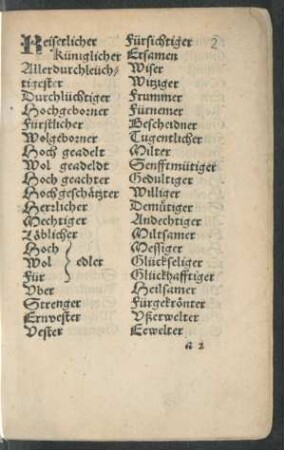 Keiserlicher
Küniglicher
Allerdurchleüch-
tigester
Durchlüchtiger
Hochgeborner
Fürstlicher
Wolgeborner
Hoch geadelt
Wol geadeldt
Hoch geachter
Hochgeschätzter
Herzlicher
Mechtiger
Löblicher
Hoch
Wol } edler
Für
Vber
Strenger
Ernvester
Vester
Fürsichtiger 2
Ersamen
Wiser
Witziger
Frummer
Fürnemer
Bescheidner
Tugentlicher
Milter
Senfftmütiger
Gedultiger
Williger
Demütiger
Andechtiger
Miltsamer
Messiger
Glückseliger
Glückhafftiger
Heilsamer
Fürgekrönter
Vßerwelter
Eewelter
a 2